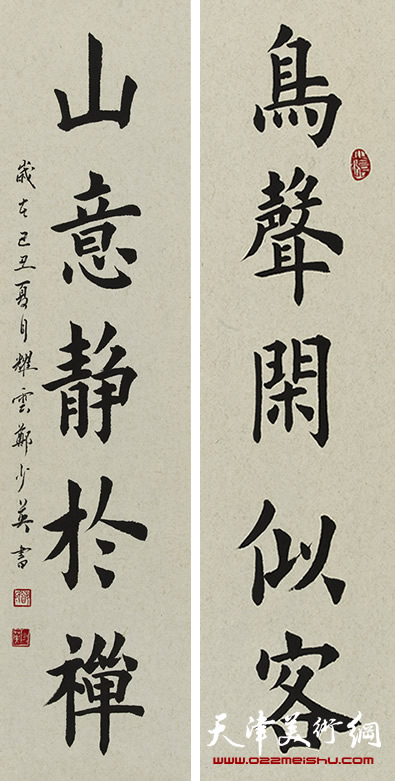 鳥聲閑似客
山意靜於禪
歲在己丑夏月耀雲鄭少英書
天津美術網
www.022meishu.com